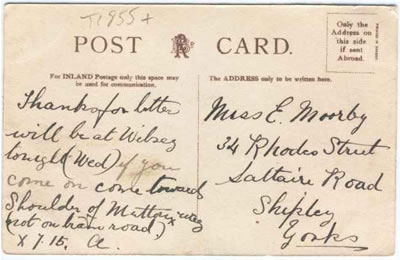 T1955+
POST CARD.
Only the
Address on
this side
if sent
Abroad.
For INLAND Postage only this space may
be used for communication.
The ADDRESS only to be written here.
Thanks for letter
will be at Wibsey
tonight (Wed) if you
come on come towards
Shoulder of Mutton way
(not on tram road)
x 7.15. A.
Miss E. Moorby
34 Rhodes Street
Saltaire Road
Shipley
Yorks